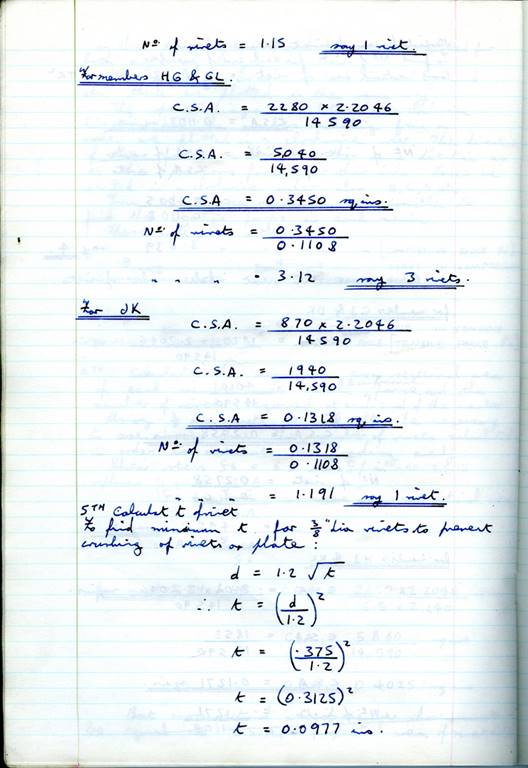 Nº of rivets = 1.15 say 1 rivet.
For members HG & GL.
C.S.A. = 2280 × 2.2046
14590
C.S.A. = 5040
14,590
C.S.A = 0.3450 sq, ins.
Nº of rivets = 0.3450
0.1108
" " " = 3.12 say 3 rivets.
For JK
C.S.A. = 870 × 2.2046
14590
C.S.A. = 1940
14,590
C.S.A = 0.1318 sq, ins.
Nº of rivets = 0.1318
0.1108
" " " = 1.191 say 1 rivet.
5TH Calculat t of rivet
To find minimum t for 3/8" dia rivets to prevent
crushing of rivets or plate :
d = 1.2 √t
∴ t = (d/1.2)²
t = (.375/1.2)²
t = (0.3125)²
t = 0.0977 ins.